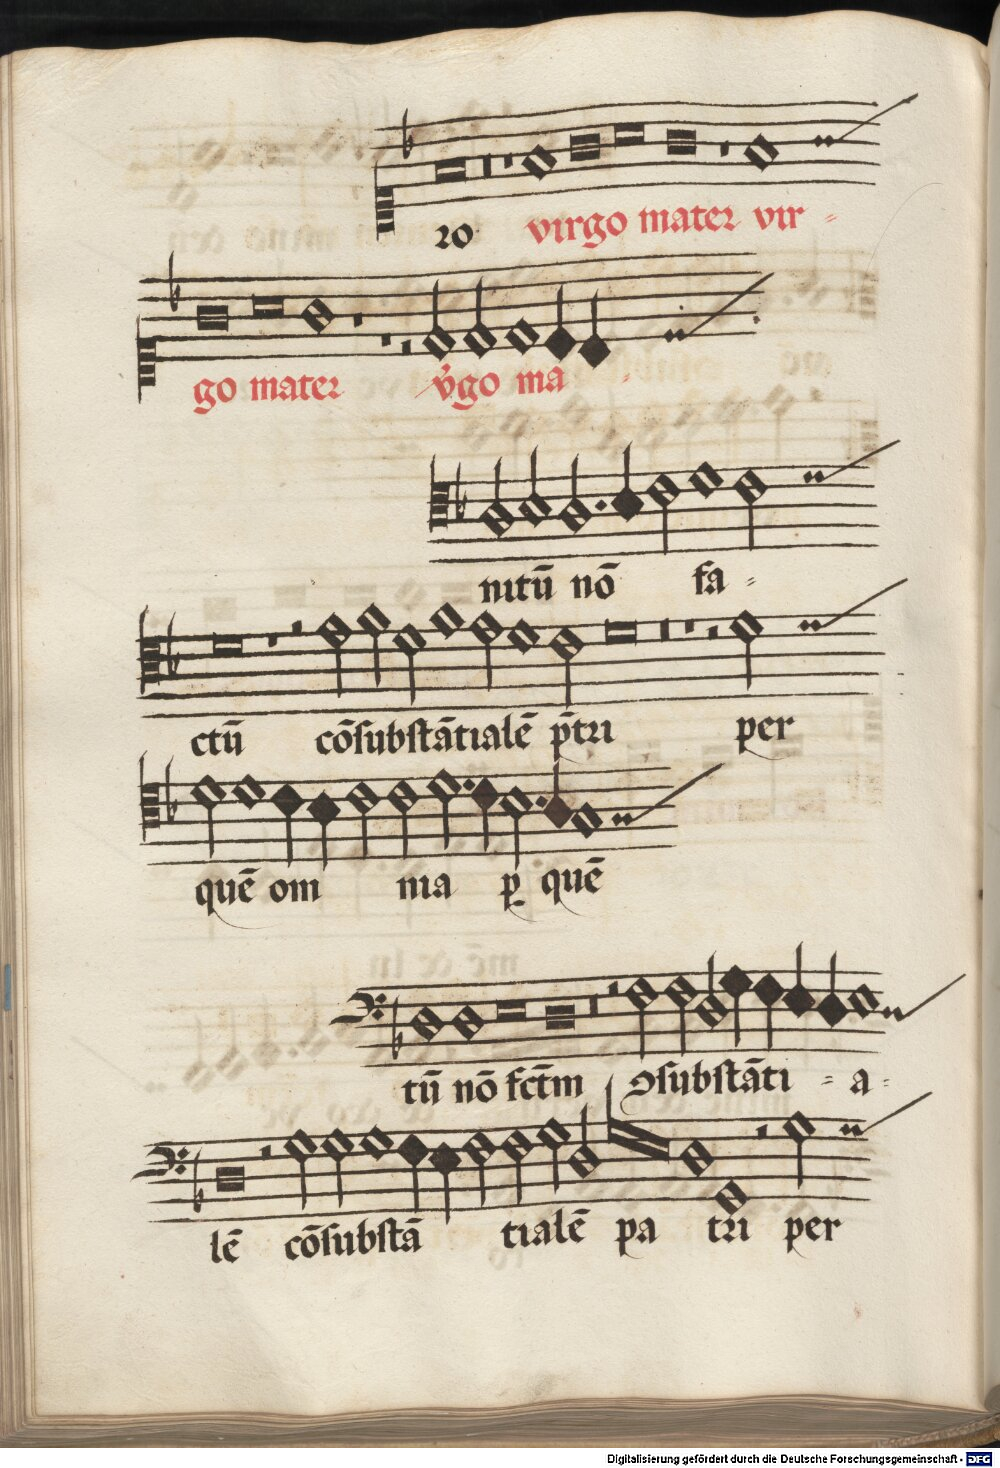 ro virgo mater vir-
go mater v̉go ma
nitū nō fa-
ctū cōsubstātialē p̄tri per
quē om nia ꝑ quē
tū nō fct̄m ↄsubstāti - a-
lē cōsubstā tialē pa tri per
Digitalisierung gefördert durch die Deutsche Forschungsgemeinschaft - DFG